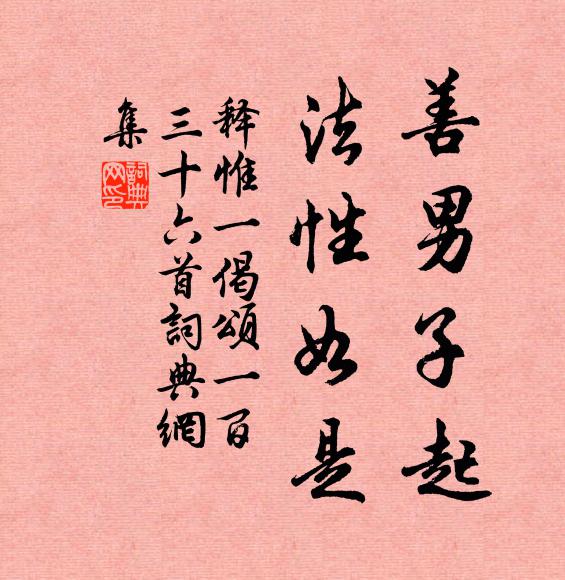 善男子起
法性如是
释惟一偈頌一百
三十六首詞典網
集
詞典网印